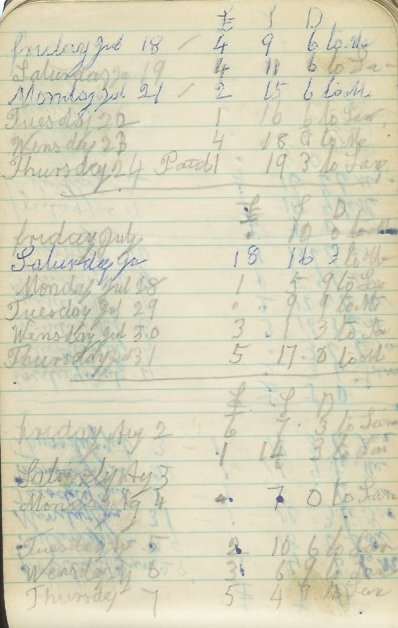 £ S D
friday Jul 18 / 4 9 6 to Mo
Saturday Ju 19 4 11 6 to Sa
Monday Jul 21 / 2 15 6 to M
Tuesday 22 1 16 6 to Sam
Wensday 23 4 18 0 to Mo
Thursday 24 Paid 1 19 3 to Sam
£ S D
friday July 10 0
Saturday Ju 18 16 3 to Mo
Monday Jul 28 1 5 9 to Sa
Tuesday Jul 29 9 9 to Mo
Wensday Jul 30 3 1 3 to Sa
Thursday 31 5 17 0 to M
£ S D
friday Aug 2 6 7 3 to Sam
1 14 3 to Sa
Saturdy Ag 3
Monday Ag 4 7 0 to Sam
Tuesday 5 2 10 6 to Sa
Wensday 6 3 6 9 to
Thursday 7 5 4 Sa